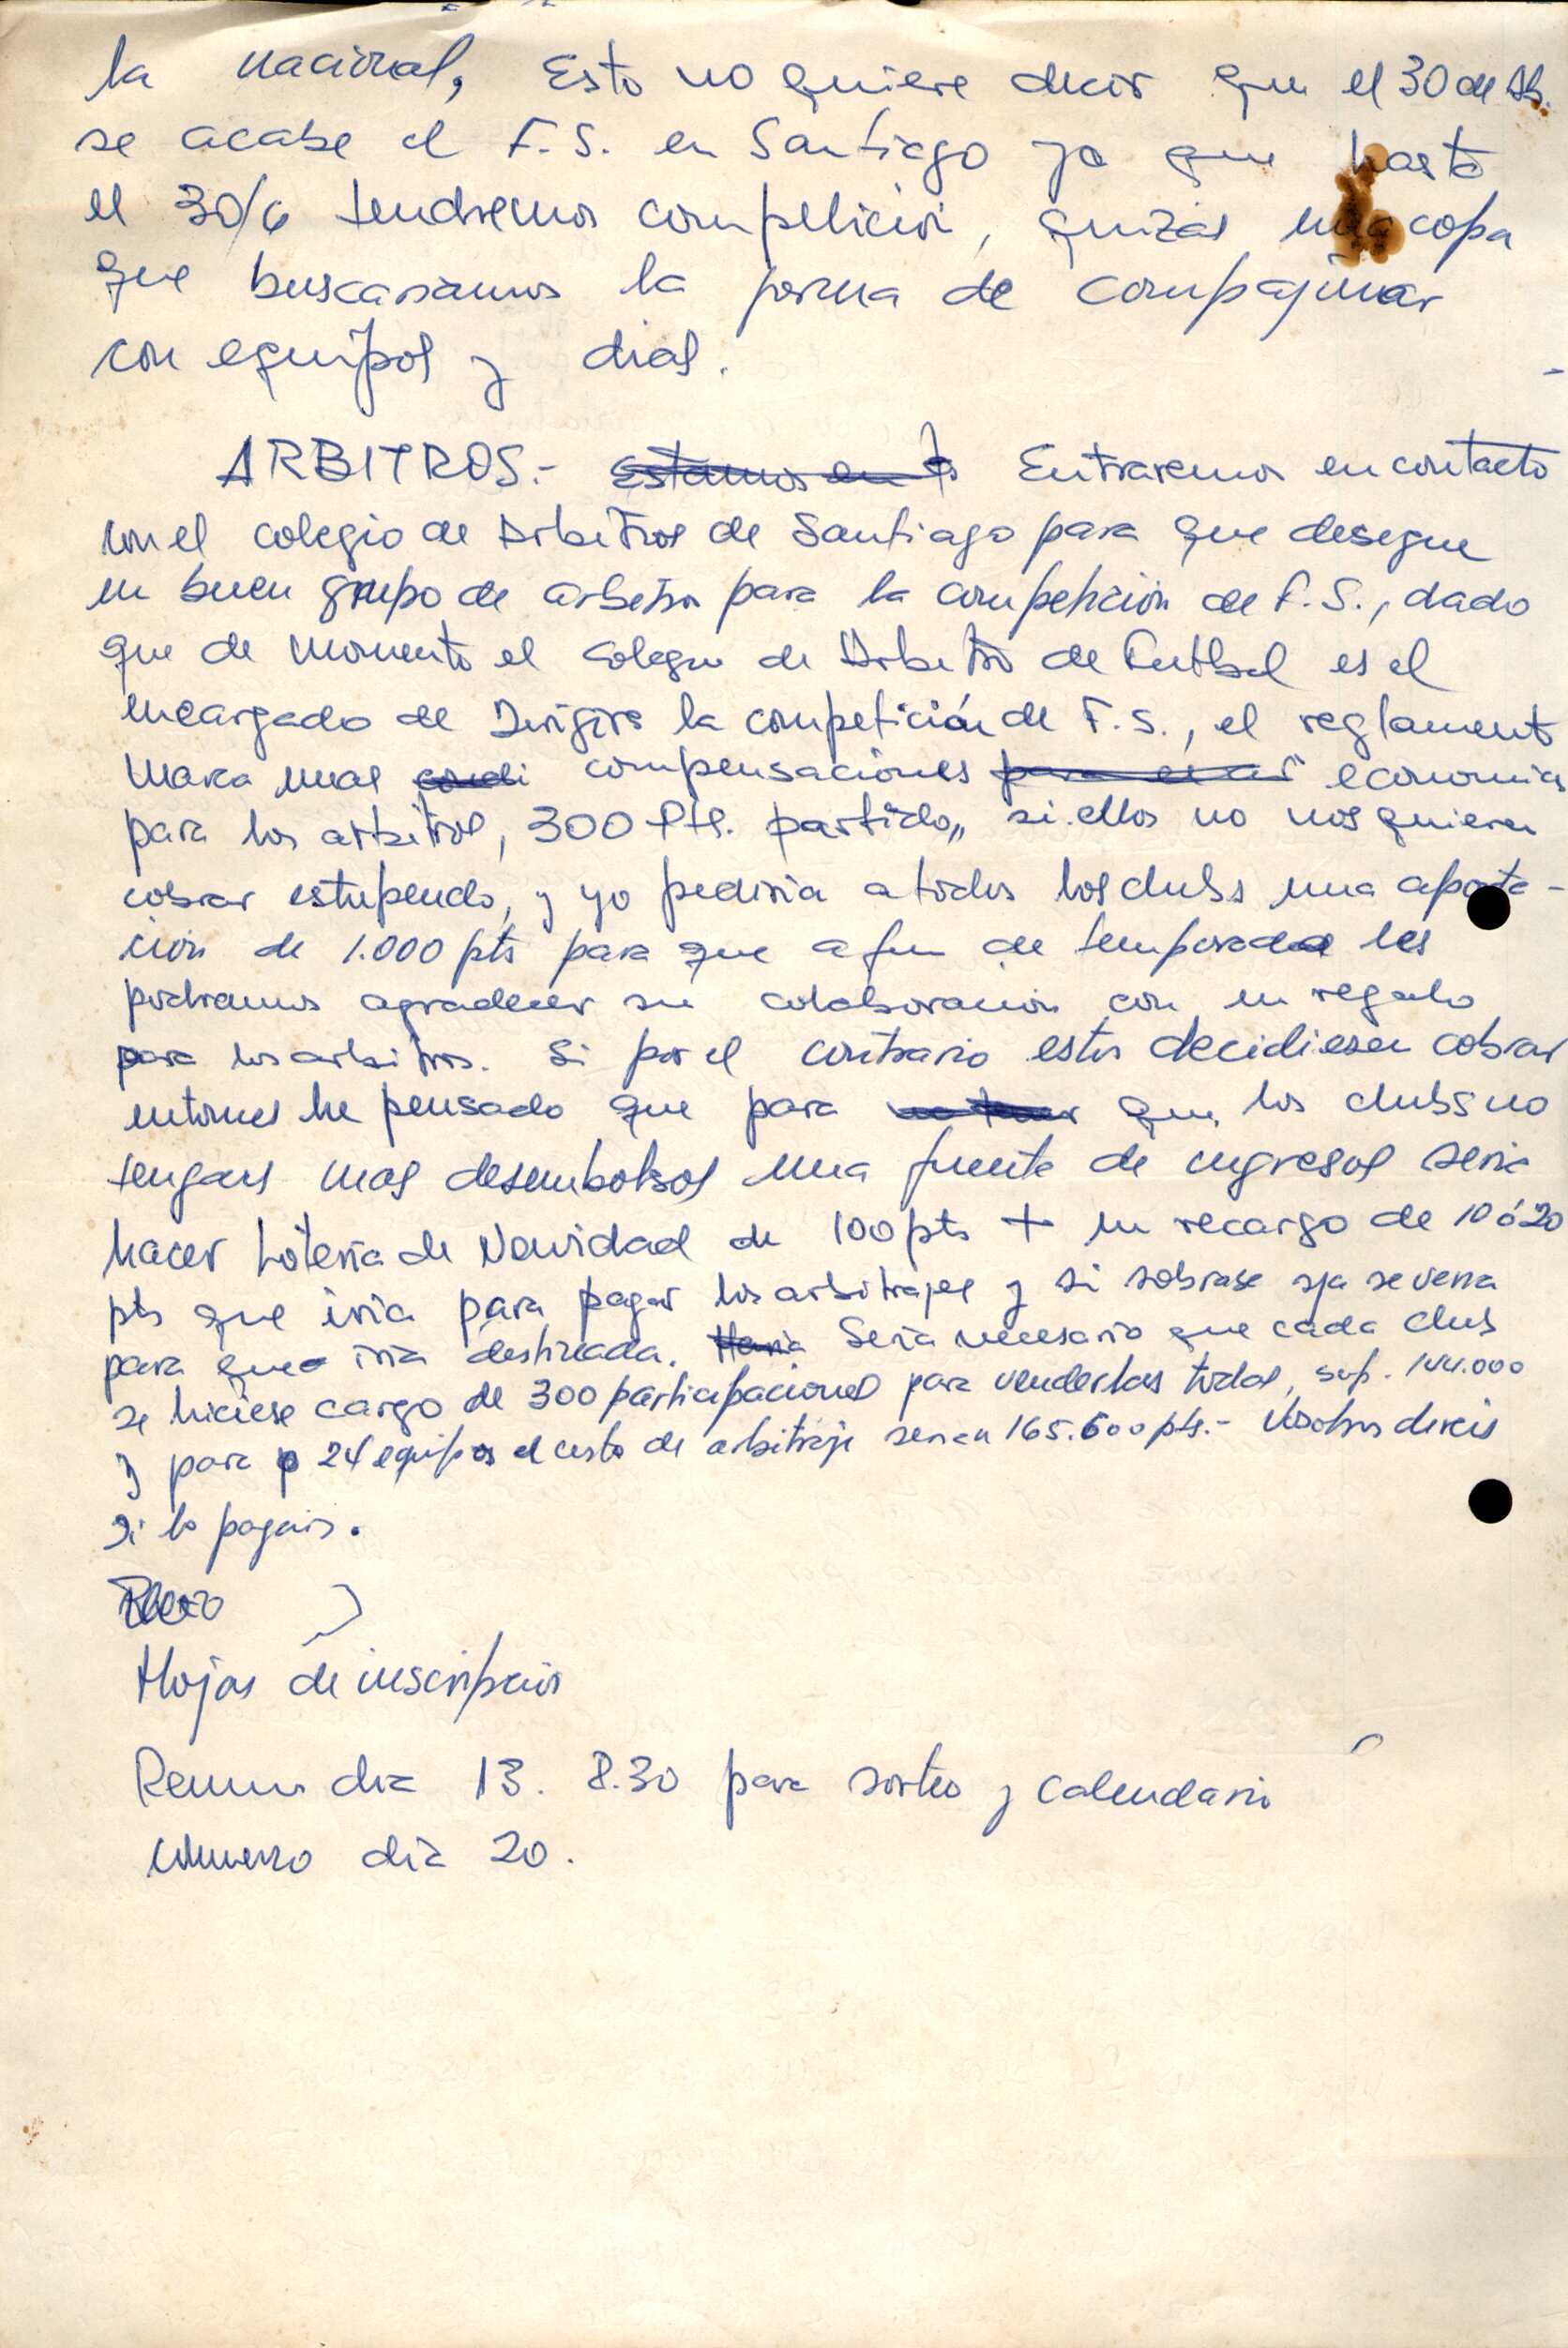 la nacional, Esto no quiere decir que el 30 de Ab.
se acabe el F.S. en Santiago ya que hasta
el 30/6 tendremos competicion, quizás una copa
que buscariamos la forma de compaginar
con equipos y dias.
ARBITROS.- Estamos en Entraremos en contacto
con el colegio de Arbitros de Santiago para que desegue
un buen grupo de arbitros para la competición de F.S., dado
que de momento el colegio de Arbitro de Futbol es el
encargado de Dirigir la competición de F.S., el reglamento
Marca unas condi compensaciones economicas
para los arbitros, 300 Pts. partido,, si ellos no nos quieren
cobrar estupendo, y yo pediria a todos los clubs una aporta-
cion de 1.000 pts para que a fin de temporada les
podramos agradecer su colaboracion con un regalo
para los arbitros. Si por el contrario estos decidiesen cobrar
entonces he pensado que para que los clubs no
tengan mas desembolsos una fuente de ingresos seria
hacer Loteria de Navidad de 100 pts + un recargo de 10 ó 20
pts que iria para pagar los arbitrajes y si sobrase ya se veria
para que iria destinada. Seria necesario que cada club
se hiciese cargo de 300 participaciones para venderlas todas, sup. 144.000
y para 24 equipos el costo de arbitraje serian 165.600 pts.- Vosotros direis
si lo pagais.
Hojas de inscripcion
Reunion dia 13. 8.30 para sorteo y calendario
comienzo dia 20.